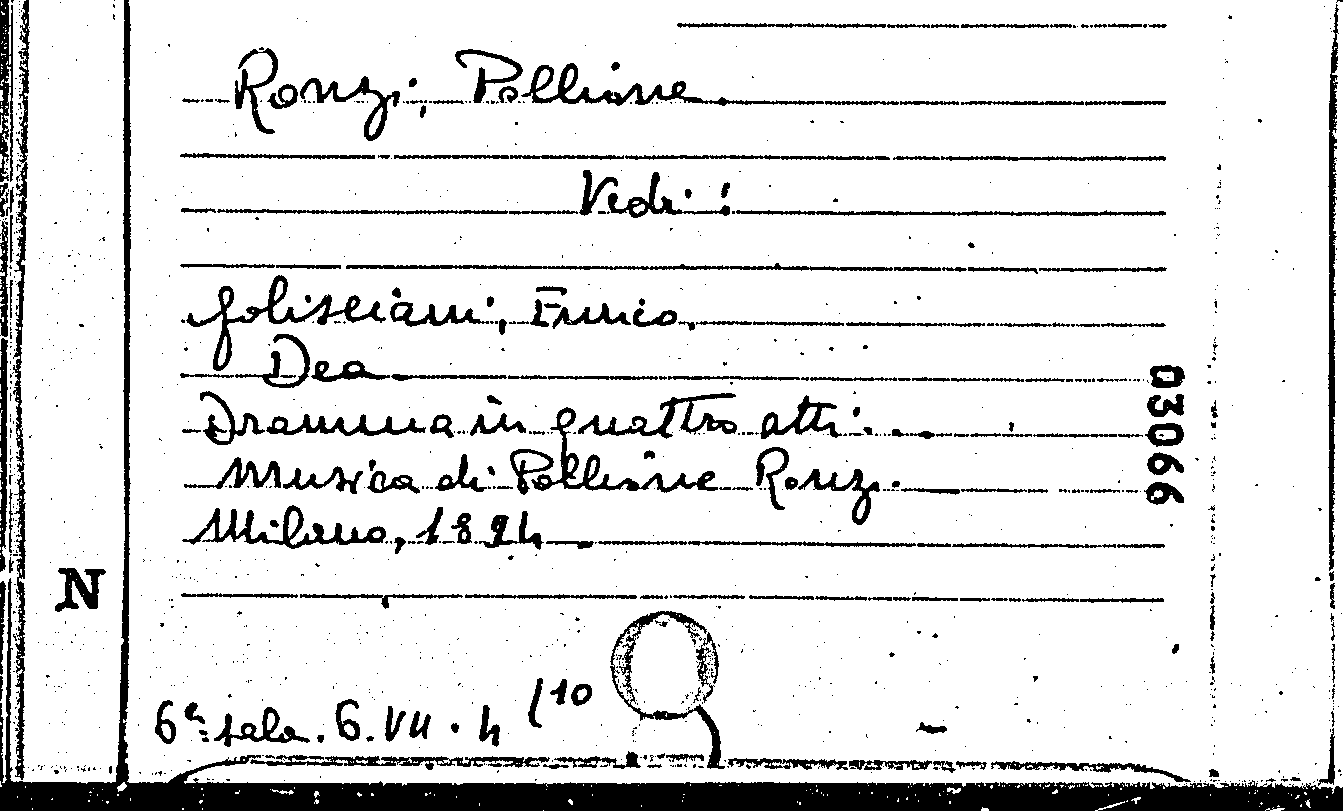 Ronzi, Pollione.
Vedi:
Golisciani, Enrico.
Dea.
Dramma in quattro atti...
Musica di Pollione Ronzi.
Milano, 1894.
03066
N
6ª sala. 6. VII. 4 /10